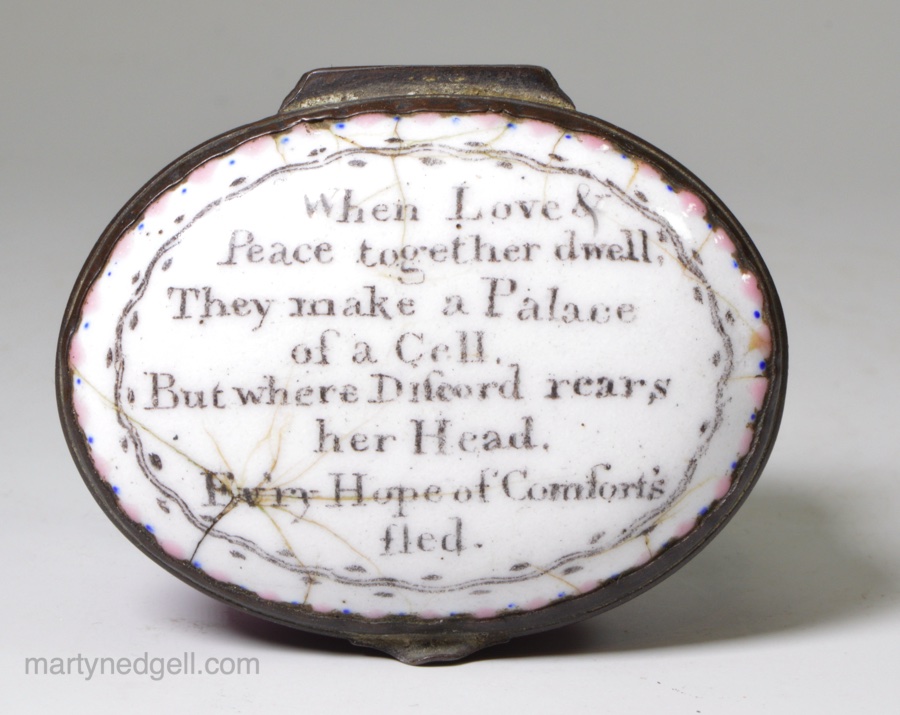 When Love &
Peace together dwell,
They make a Palace
of a Cell.
But where Diſcord rears
her Head.
Ev'ry Hope of Comfort's
fled.
martynedgell.com